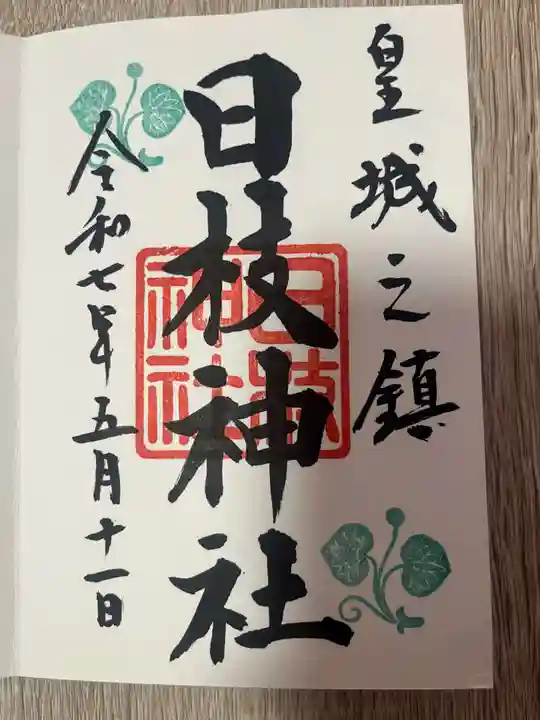 皇城之鎮
日枝神社
日枝
神社
令和七年五月十一日